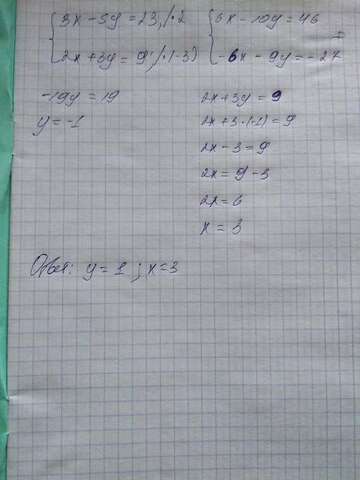 3x - 5y = 23, /·2
2x + 3y = 9 /·(-3)
6x - 10y = 46
-6x - 9y = -27
-19y = 19
y = -1
2x + 3y = 9
2x + 3·(-1) = 9
2x - 3 = 9
2x = 9 - 3
2x = 6
x = 3
Ответ: y = 1 ; x = 3